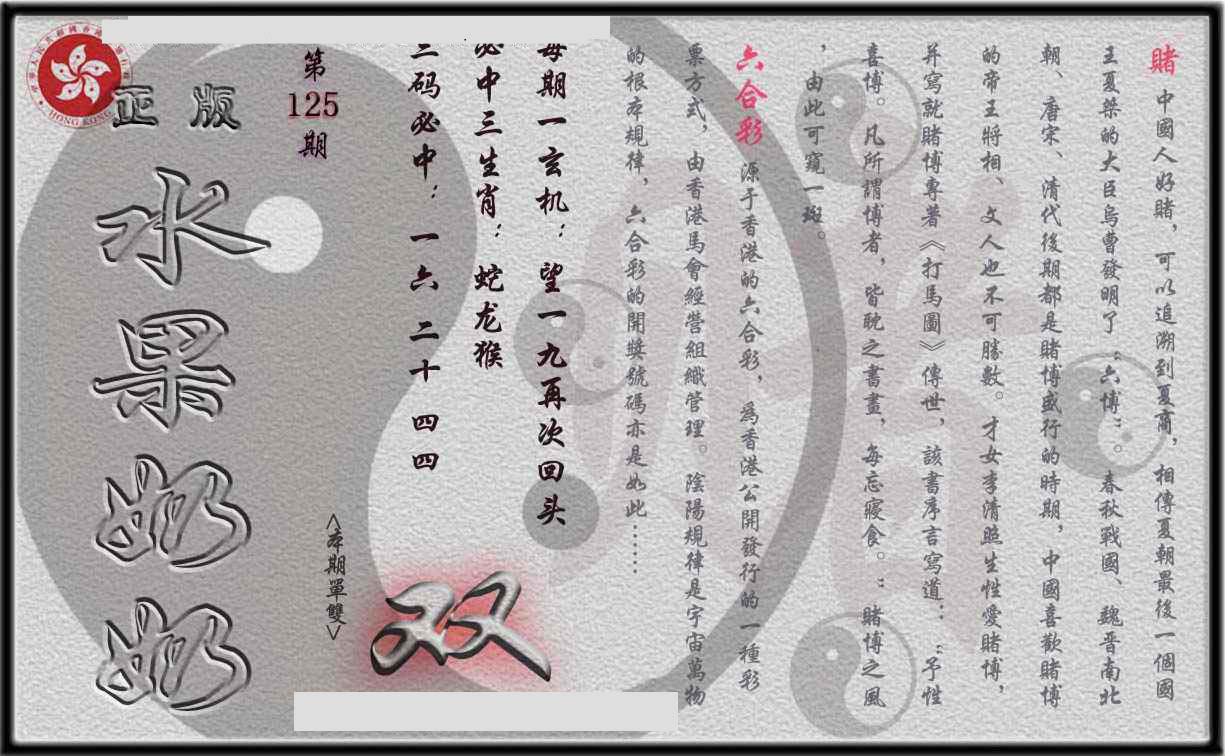 賭 中國人好賭，可以追溯到夏商，相傳夏朝最後一個國
王夏桀的大臣烏曹發明了“六博”。春秋戰國、魏晋南北
朝、唐宋、清代後期都是賭博盛行的時期，中國喜歡賭博
的帝王將相、文人也不可勝數。才女李清照生性愛賭博，
并寫就賭博專著《打馬圖》傳世，該書序言寫道：“予性
喜博。凡所謂博者，皆耽之書畫，每忘寢食。”賭博之風
，由此可窺一斑。
六合彩 源于香港的六合彩，爲香港公開發行的一種彩
票方式，由香港馬會經營組織管理。陰陽規律是宇宙萬物
的根本規律，六合彩的開獎號碼亦是如此……
每期一玄机：望一九再次回头
必中三生肖：蛇龙猴
三码必中：一六 二十 四四
双
<本期單雙>
第
125
期
正版
水果奶奶
HONG KONG